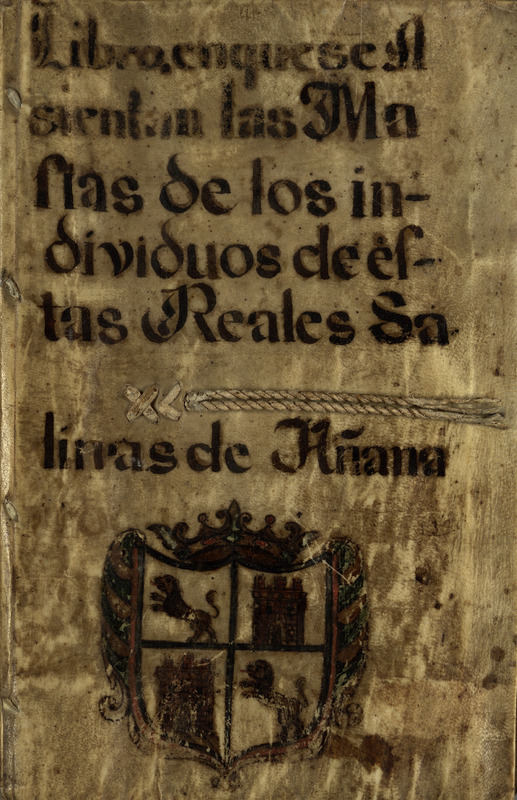 Libro, en que se A
sientan las Ma
sias de los in-
dividuos de és-
tas Reales Sa
linras de Añana